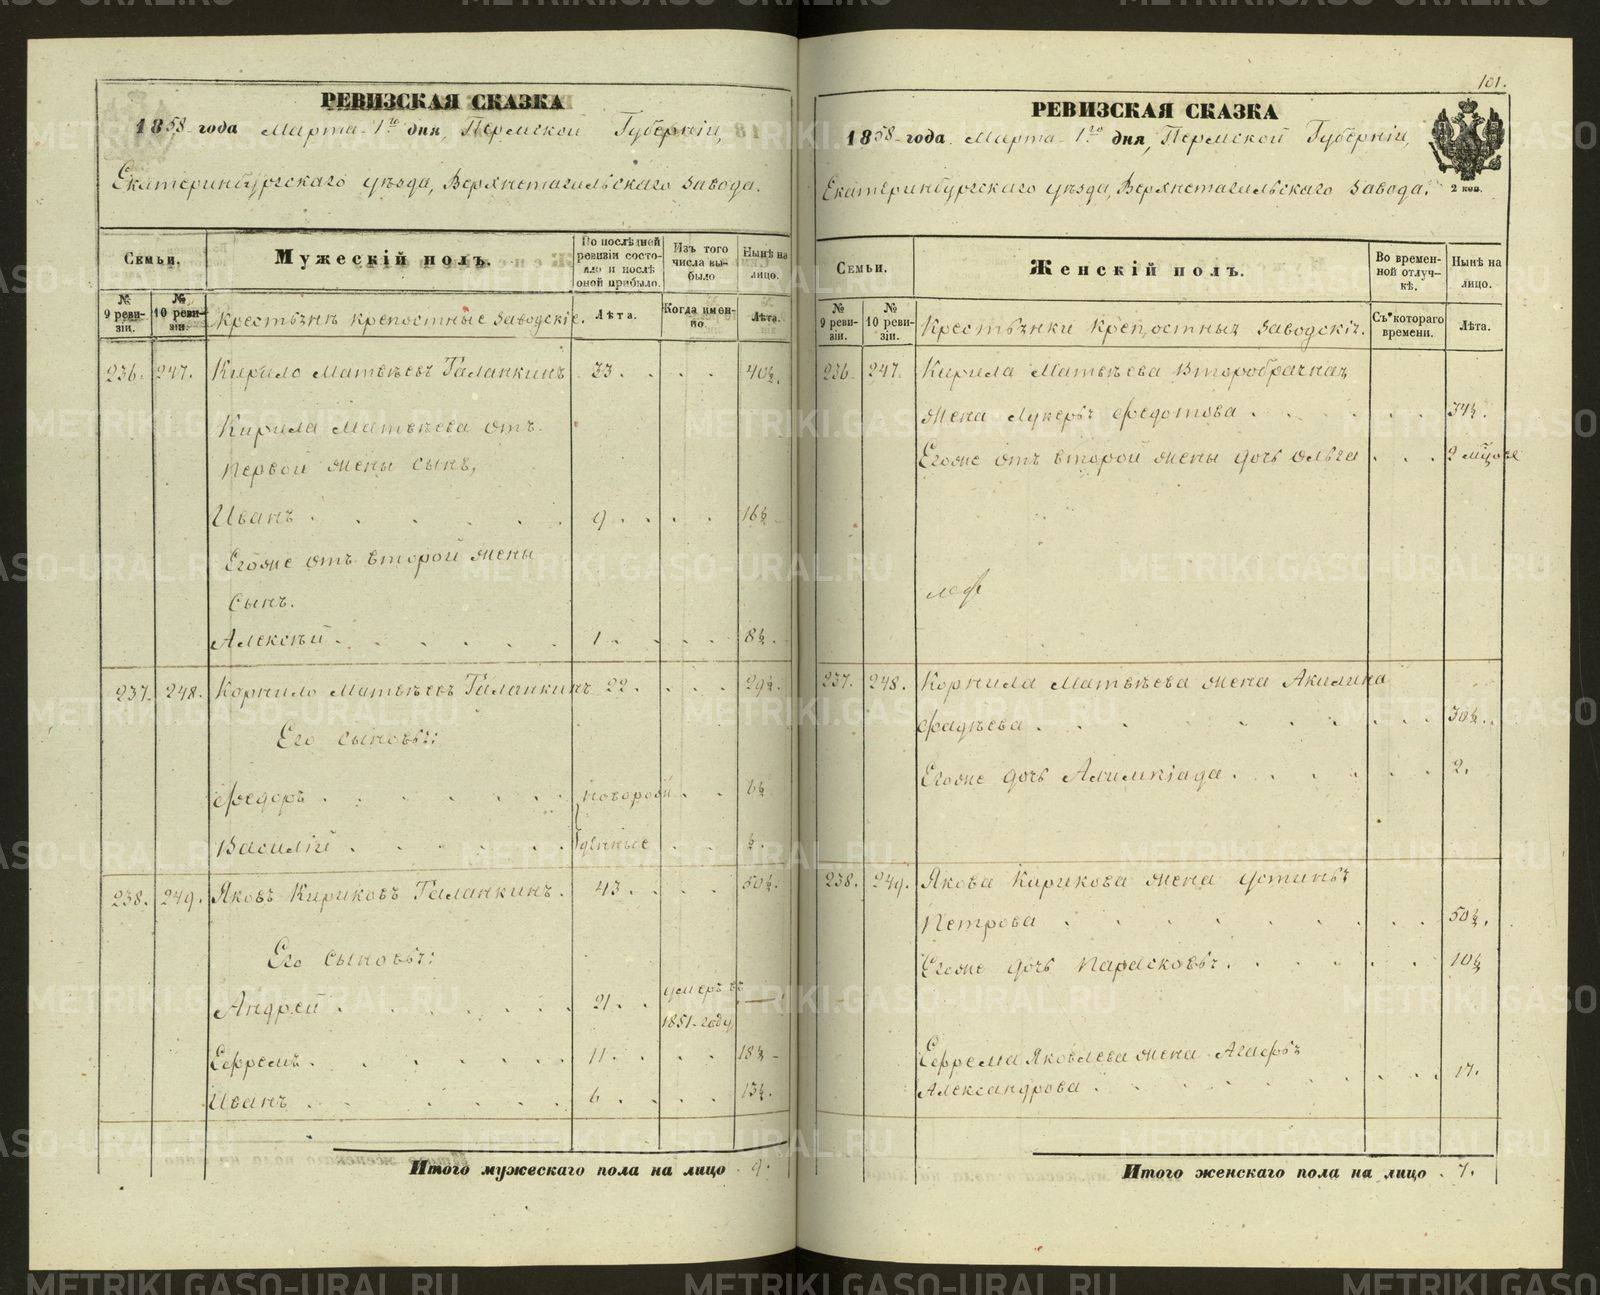 РЕВИЗСКАЯ СКАЗКА
1858 года Марта 1го дня, Пермской Губернiи,
Екатеринбургскаго уѣзда, Верхнетагильскаго завода.
Семьи.
Мужескiй полъ.
По послѣдней ревизiи состояло и послѣ оной прибыло.
Изъ того числа выбыло
Нынѣ на лицо.
№ 9 ревизiи.
№ 10 ревизiи.
Крестьяне крепостные заводскiе.
Лѣта.
Когда именно
Лѣта.
236. 247. Кирило Матвѣевъ Галанкинъ 33. 40½.
Кирила Матвѣева отъ
первой жены сынъ,
Иванъ 9. 16½
Егоже отъ второй жены
сынъ.
Алексѣй 1. 8½.
237. 248. Корнило Матвѣевъ Галанкинъ 22. 29½.
Его сыновья:
Федоръ новорож 6½
Василiй денные ½.
238. 249. Яковъ Кириковъ Галанкинъ. 43. 50½.
Его сыновья:
Андрей 21. умеръ въ 1851 году —
Ефремъ. 11. 18½
Иванъ 6. 13½.
Итого мужескаго пола на лицо 9.
101.
РЕВИЗСКАЯ СКАЗКА
1858 года Марта 1го дня, Пермской Губернiи,
Екатеринбургскаго уѣзда, Верхнетагильскаго завода.
2 коп.
Семьи.
Женскiй полъ.
Во временной отлучкѣ.
Нынѣ на лицо.
№ 9 ревизiи.
№ 10 ревизiи.
Крестьянки крепостныя заводскiя.
Съ котораго времени.
Лѣта.
236. 247. Кирила Матвѣева второбрачная
жена Лукерья Федотова 34½.
Егоже отъ второй жены дочь Ольга 2
237. 248. Корнила Матвѣева жена Акилина
Фадѣева 30½.
Егоже дочь 2.
238. 249. Якова Кирикова жена Устинья
Петрова 50½.
Егоже дочь Парасковья. 10½
Ефрема Яковлева жена Агафья
Александрова 17.
Итого женскаго пола на лицо 7.
METRIKI.GASO-URAL.RU